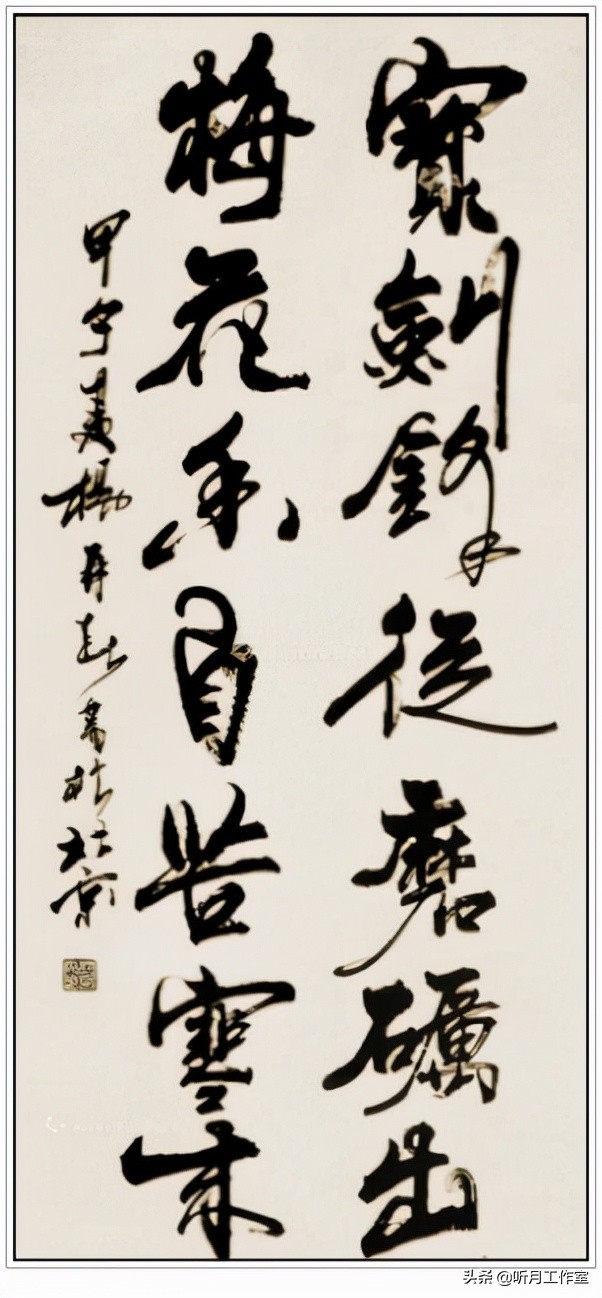 寶劍鋒從磨礪出
梅花香自苦寒來
甲午夏楊再春書於北京
头条 @听月工作室